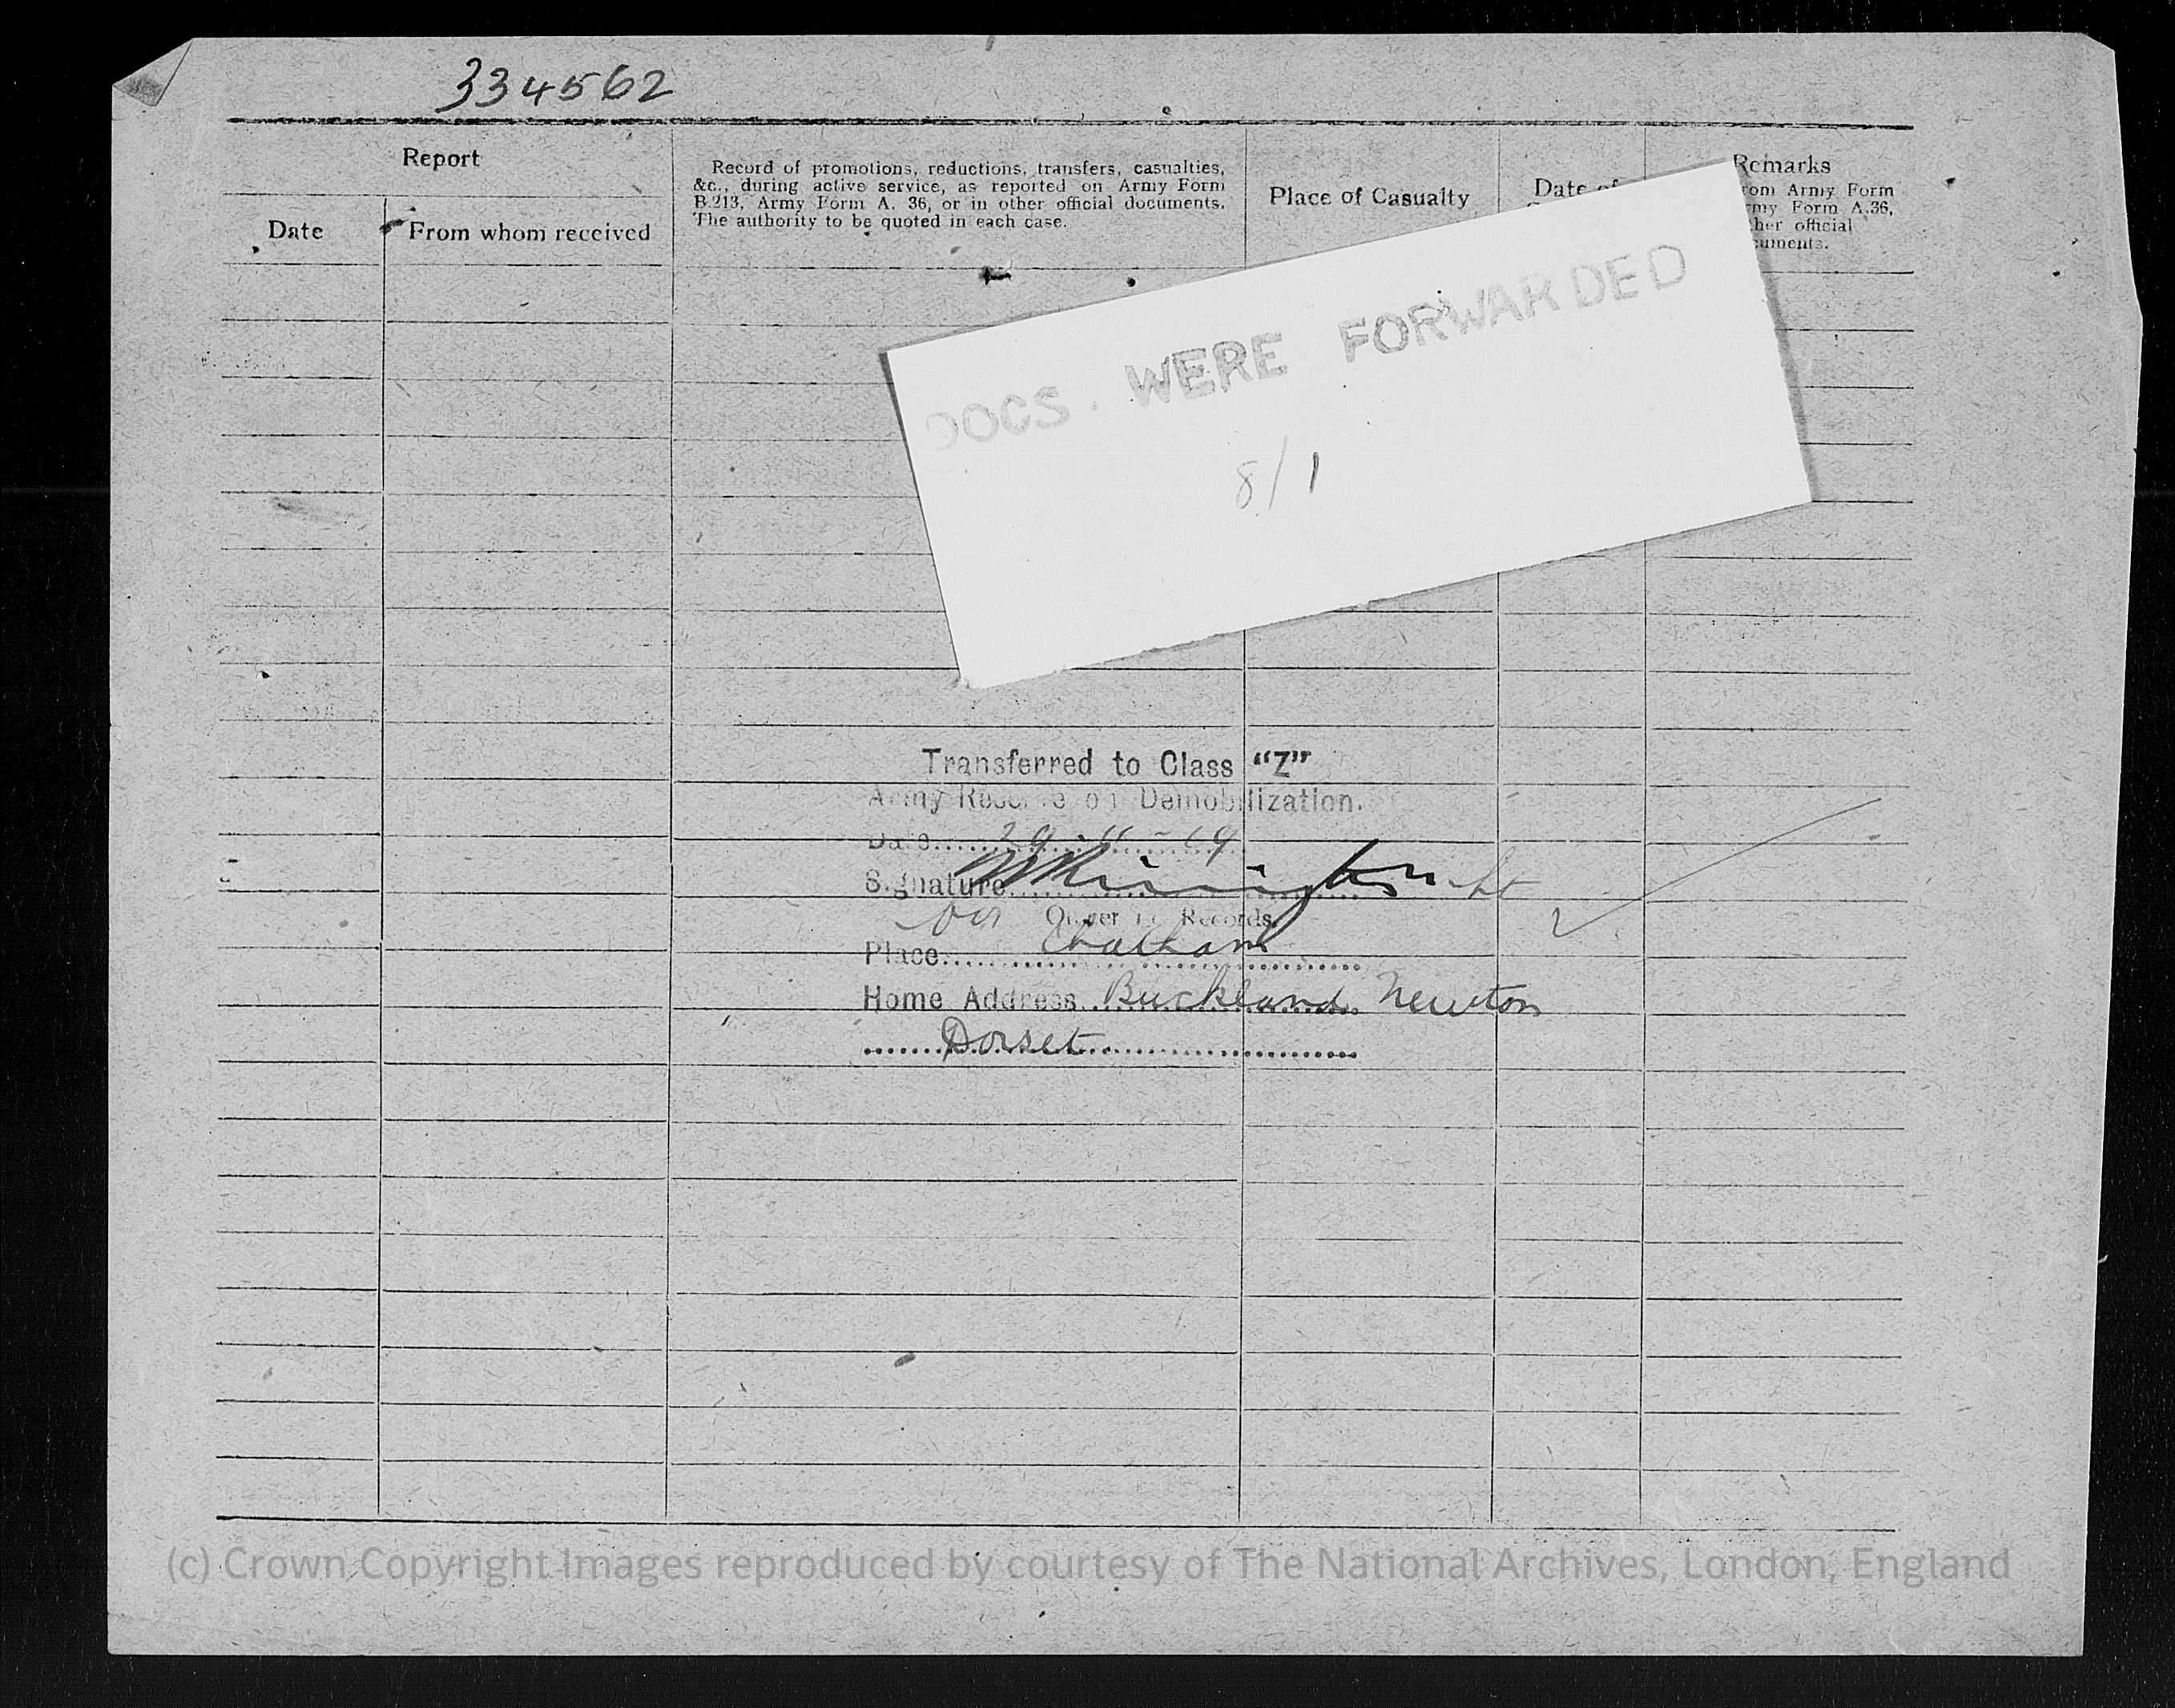 334562
Report
Date
From whom received
Record of promotions, reductions, transfers, casualties,
&c., during active service, as reported on Army Form
B.213, Army Form A. 36, or in other official documents.
The authority to be quoted in each case.
Place of Casualty
Date of
Remarks
rom Army Form
rmy Form A.36,
her official
cuments.
DOCS. WERE FORWARDED
8/1
Transferred to Class “Z”
Army Reserve on Demobilization.
Date 29.11-19
Signature
for Officer i/c Records.
Place Chatham
Home Address Buckland Newton
Dorset
(c) Crown Copyright Images reproduced by courtesy of The National Archives, London, England